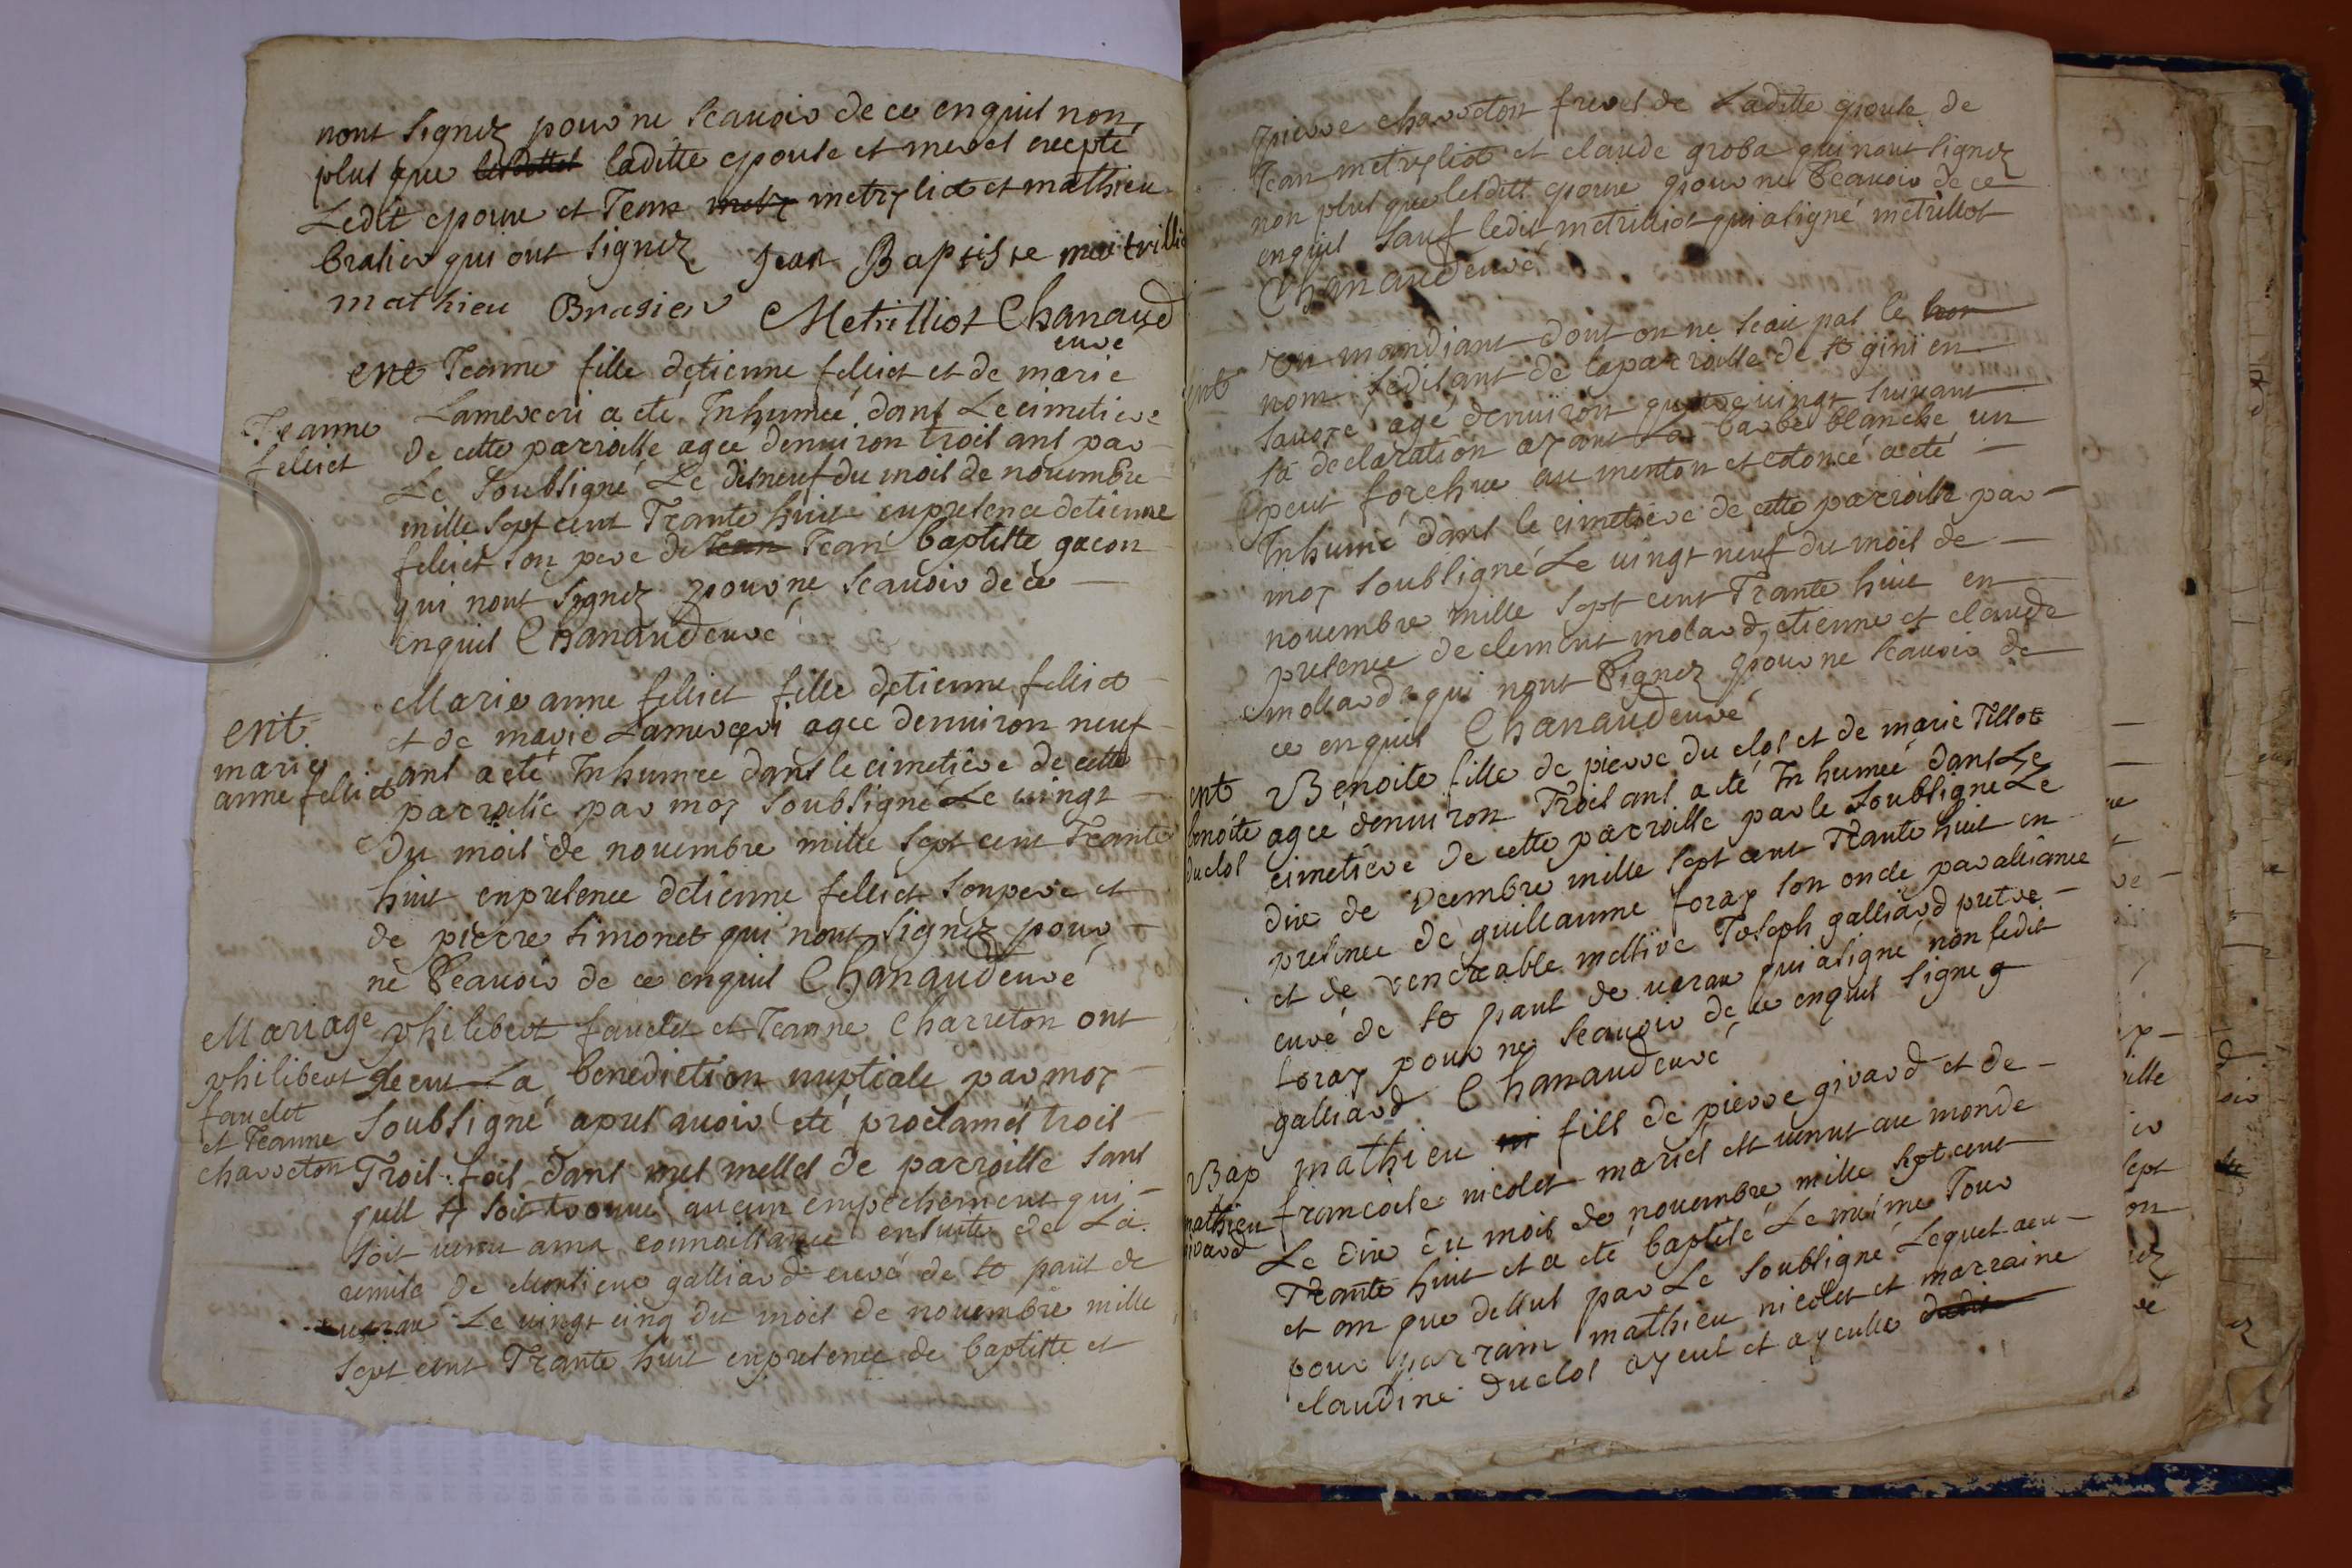 nont signez pour ne scauoir de ce enquis non
plus que lesdittes laditte epouse et meres excepté
Ledit epoux et Jean metz metryliot et mathieu
brasier qui ont signez Jean Baptiste metrillio
mathieu Brasier Metrilliot Chanaud
curé
ent Jeanne fille detienne felliet et de marie
Lamerceri a eté Inhumeé dans Le cimetiere
Jeanne
felliet
de cette parroisse ageé denuiron trois ans par
Le soubsigné Le disneuf du mois de nouembre
mille sept cent Trante huit en presence detienne
felliet son pere de Jean Jean baptiste gacon
qui nont signez pour ne scauoir de ce
enquis Chanaud curé
ent
marie
anne felliet
Marie anne felliet fille detienne felliet
et de marie Lamerceri ageé denuiron neuf
ans a eté Inhumeé dans le cimetiere de cette
parroisse par moy soubsigné Le uingt
du mois de nouembre mille sept cent Trante
huit en presence detienne felliet son pere et
de pierre simonet qui nont signéz pour
ne scauoir de ce enquis Chanaud curé
Mariage
philibert
faudet
et Jeanne
charreton
philibert faudet et Jeanne Charreton ont
Receu La benediction nuptiale par moy
Soubsigné apres auoir eté proclamés trois
Trois fois dans mes messes de parroisse sans
quil sy soit trouué aucun empechement qui
soit uenu a ma connoissance ensuitte de La
remise de Monsieur galliard curé de st paul de
uarax Le uingt cinq du mois de nouembre mille
sept cent Trante huit en presence de baptiste et
pierre charreton freres de Laditte epouse de
Jean metryliot et claude groba qui nont signez
non plus que lesdits epoux pour ne scauoir de ce
enquis sauf ledit metrilliot qui a signé metrillot
Chanaud curé
ent
Un mandiant dont on ne scait pas le nom
nom se disant de la parroisse de st gini en
sauoye agé denuiron quatre uingt suiuant
sa declaration ayant La barbe blanche un
peut forchue au menton et a eté
Inhumé dans le cimetiere de cette parroisse par
moy soubsigné Le uingt neuf du mois de
nouembre mille sept cent Trante huit en
presence de clement molard, etienne et claude
mollard qui nont signez pour ne scauoir de
ce enquis Chanaud curé
ent
benoite
duclos
Benoite fille de pierre du clos et de marie Tillot
ageé denuiron Trois ans a eté Inhumeé dans Le
cimetiere de cette parroisse par le soubsigné Le
dix de decembre mille sept cent Trante huit en
presence de guillaume foray son oncle par alliance
et de venerable messire Joseph galliard pretre
curé de st paul de uarax qui a signé non ledit
foray pour ne scauoir de ce enquis signe g
galliard Chanaud curé
Bap
mathieu
girard
mathieu fils de pierre girard et de
francoise nicolet mariés est uenut au monde
Le dix du mois de nouembre mille sept cent
Trante huit et a eté baptisé Le meme Jour
et an que dessus par Le soubsigné Lequel a eu
pour parrain mathieu nicolet et marraine
claudine duclos ayeul et ayeulle dudit